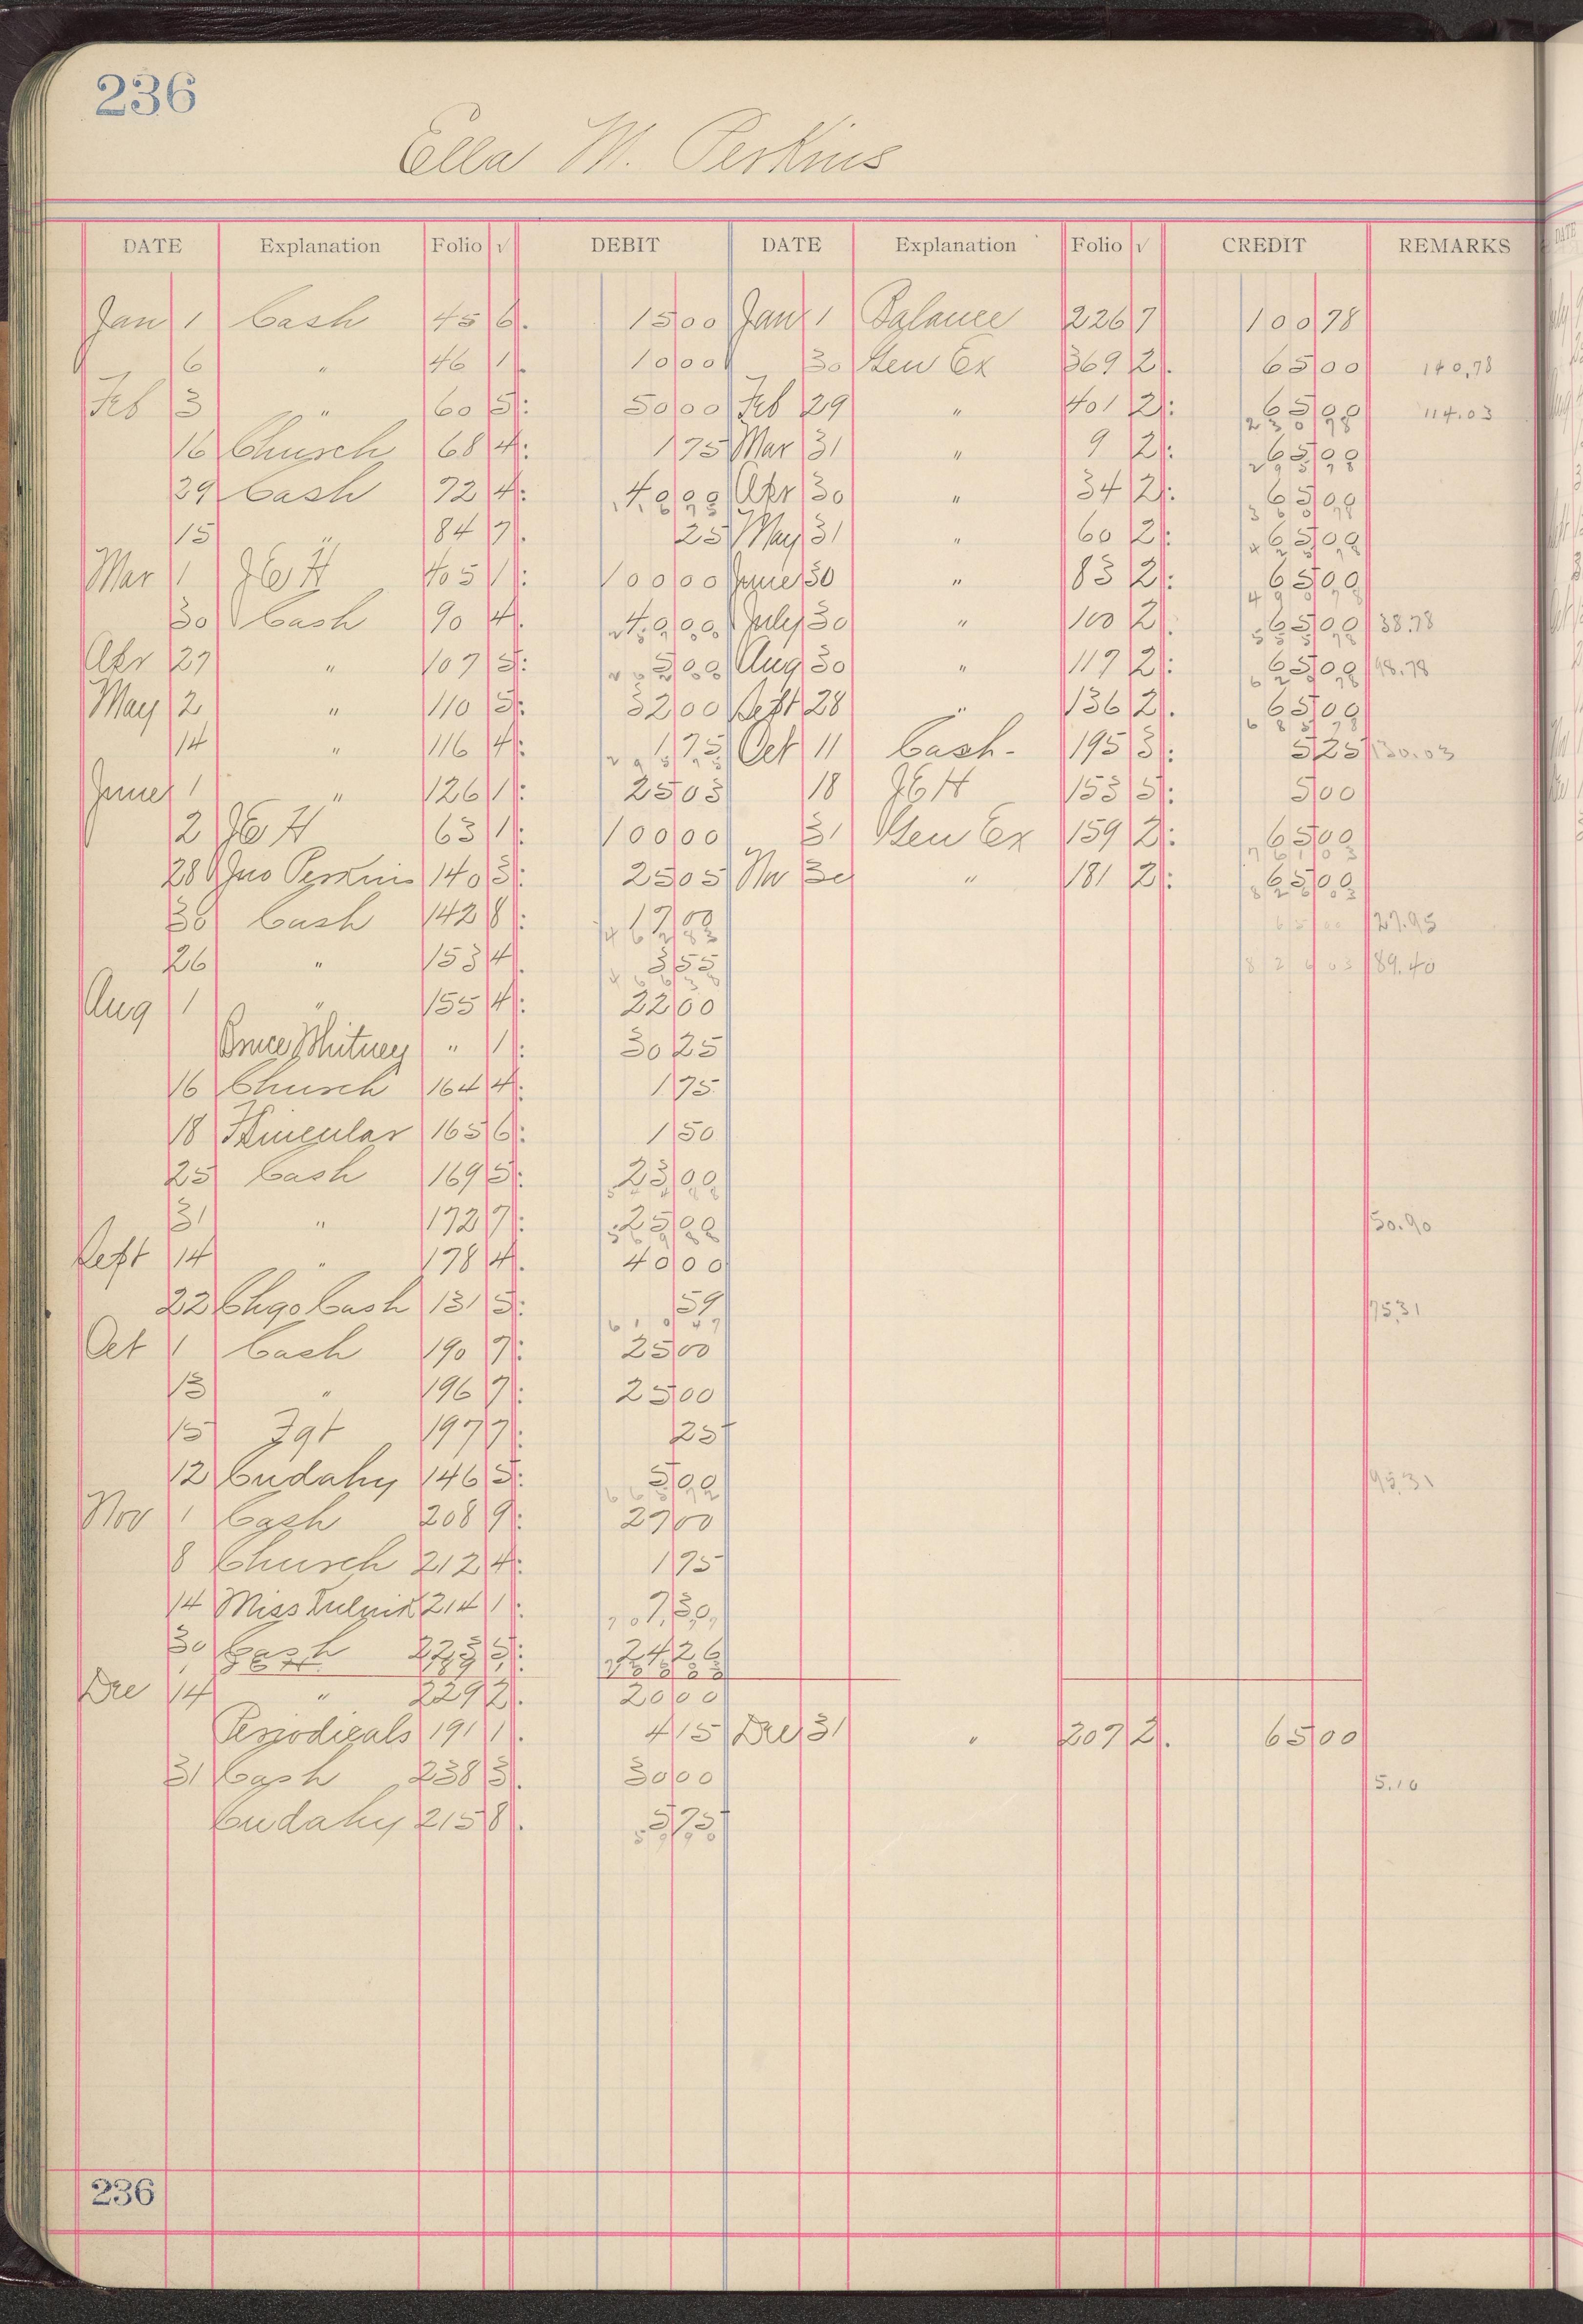 236
Ella M. Perkins
DATE Explanation Folio √ DEBIT DATE Explanation Folio √ CREDIT REMARKS
Jan 1 Cash 45 6. 15 00 Jan 1 Balance 226 7 100 78
6 " 46 1. 10 00 30 Gen Ex 369 2. 65 00 140.78
Feb 3 " 60 5: 50 00 Feb 29 " 401 2: 65 00 114.03
230 78
16 Church 68 4: 1 75 Mar 31 " 9 2: 65 00
295 78
29 Cash 72 4: 40 00 Apr 30 " 34 2: 65 00
15 " 84 7. 25 May 31 " 60 2: 65 00
Mar 1 J E H 405 1: 100 00 June 30 " 83 2: 65 00
490 78
30 Cash 90 4. 40 00 July 30 " 100 2. 65 00 38.78
555 78
Apr 27 " 107 5: 5 00 Aug 30 " 119 2: 65 00 98.78
620 78
May 2 " 110 5: 32 00 Sept 28 " 136 2. 65 00
685 78
14 " 116 4: 1 75 Oct 11 Cash - 195 3: 5 25 130.03
June 1 " 126 1: 25 03 18 J E H 153 5: 5 00
2 J E H 63 1: 100 00 31 Gen Ex 159 2: 65 00
761 03
28 Jno Perkins 140 3: 25 05 Nov 30 " 181 2: 65 00
826 03
30 Cash 142 8: 17 00 65 00 27.95
462 83
26 " 153 4. 3 55 826 03 89.40
466 38
Aug 1 " 155 4: 22 00
Bruce Whitney " 1: 30 25
16 Church 164 4: 1 75
18 1656: 1 50
25 Cash 169 5: 23 00
31 " 172 7: 25 00 50.90
569 88
Sept 14 " 178 4. 40 00
22 Chgo Cash 131 5: 59 75.31
610 47
Oct 1 Cash 190 7: 25 00
13 " 196 7: 25 00
15 Fgt 197 7: 25
12 Cudahy 146 5: 5 00 95.31
665 72
Nov 1 Cash 208 9: 27 00
8 Church 212 4: 1 75
14 Miss 214 1: 7 30
30 Cash 223 5: 24 26
J E H
Dec 14 " 229 2. 20 00
Periodicals 191 1. 4 15 Dec 31 " 207 2. 65 00
31 Cash 238 3. 30 00 5.10
Cudahy 215 8. 5 75
59 90
236